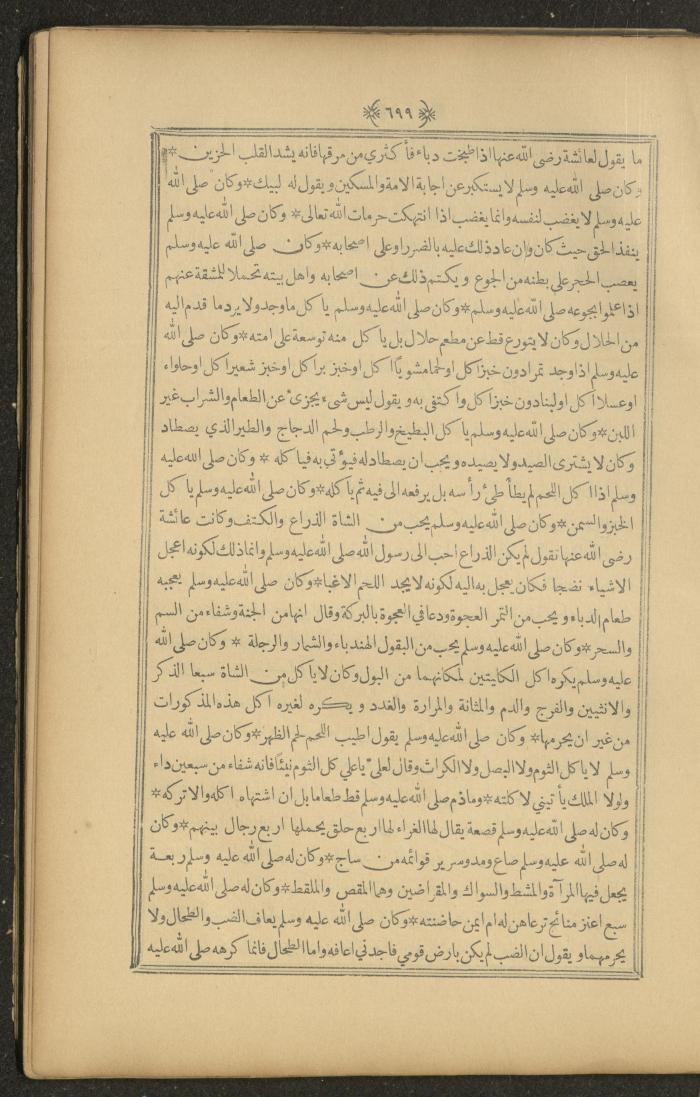 ٦٩٩
ما يقول لعائشة رضى الله عنها اذا طبخت دباء فأكثري من مرقها فانه يشد القلب الحزين *
وكان صلى الله عليه وسلم لا يستكبر عن اجابة الامة والمسكين ويقول له لبيك * وكان صلى الله
عليه وسلم لا يغضب لنفسه وانما يغضب اذا انتهكت حرمات الله تعالى * وكان صلى الله عليه وسلم
ينفذ الحق حيث كان وان عاد ذلك عليه بالضرر او على اصحابه * وكان صلى الله عليه وسلم
يعصب الحجر على بطنه من الجوع ويكتم ذلك عن اصحابه واهل بيته تحملا للمشقة عنهم
اذا علموا بجوعه صلى الله عليه وسلم * وكان صلى الله عليه وسلم يأكل ما وجد ولا يرد ما قدم اليه
من الحلال وكان لا يتورع قط عن مطعم حلال بل يأكل منه توسعة على امته * وكان صلى الله
عليه وسلم اذا وجد تمرا دون خبز اكل او لحما مشويًا اكل او خبز بر اكل او خبز شعير اكل او حلواء
او عسلا اكل او لبنا دون خبز اكل واكتفى به ويقول ليس شىء يجزئ عن الطعام والشراب غير
اللبن * وكان صلى الله عليه وسلم يأكل البطيخ والرطب ولحم الدجاج والطير الذي يصطاد
وكان لا يشترى الصيد ولا يصيده ويحب ان يصطاد له فيؤتي به فيأكله * وكان صلى الله عليه
وسلم اذا اكل اللحم لم يطأطئ رأسه بل يرفعه الى فيه ثم يأكله * وكان صلى الله عليه وسلم يأكل
الخبز والسمن * وكان صلى الله عليه وسلم يحب من الشاة الذراع والكتف وكانت عائشة
رضى الله عنها تقول لم يكن الذراع احب الى رسول الله صلى الله عليه وسلم وانما ذلك لكونه اعجل
الاشياء نضجا فكان يعجل به اليه لكونه لا يجد اللحم الا غبا * وكان صلى الله عليه وسلم يعجبه
طعام الدباء ويحب من التمر العجوة ودعا في العجوة بالبركة وقال انها من الجنة وشفاء من السم
والسحر * وكان صلى الله عليه وسلم يحب من البقول الهندباء والشمار والرجلة * وكان صلى الله
عليه وسلم يكره اكل الكليتين لمكانهما من البول وكان لا يأكل من الشاة سبعا الذكر
والانثيين والفرج والدم والمثانة والمرارة والغدد ويكره لغيره اكل هذه المذكورات
من غير ان يحرمها * وكان صلى الله عليه وسلم يقول اطيب اللحم لحم الظهر * وكان صلى الله عليه
وسلم لا يأكل الثوم ولا البصل ولا الكراث وقال لعلي يا علي كل الثوم نيئًا فانه شفاء من سبعين داء
ولولا الملك يأتيني لاكلته * وما ذم صلى الله عليه وسلم قط طعاما بل ان اشتهاه اكله والا تركه *
وكان له صلى الله عليه وسلم قصعة يقال لها الغراء لها اربع حلق يحملها اربع رجال بينهم * وكان
له صلى الله عليه وسلم صاع ومد وسرير قوائمه من ساج * وكان له صلى الله عليه وسلم ربعة
يجعل فيها المرآة والمشط والسواك والمقراضين وهما المقص والملقط * وكان له صلى الله عليه وسلم
سبع اعنز منائح ترعاهن له ام ايمن حاضنته * وكان صلى الله عليه وسلم يعاف الضب والطحال ولا
يحرمهما ويقول ان الضب لم يكن بارض قومي فاجدني اعافه واما الطحال فانما كرهه صلى الله عليه